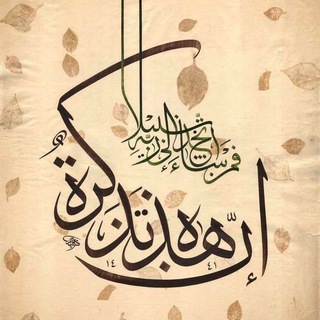 إنّ هذه تذكرة
فمن شاء اتخذ إلى ربه سبيلا
١٤ ٤١